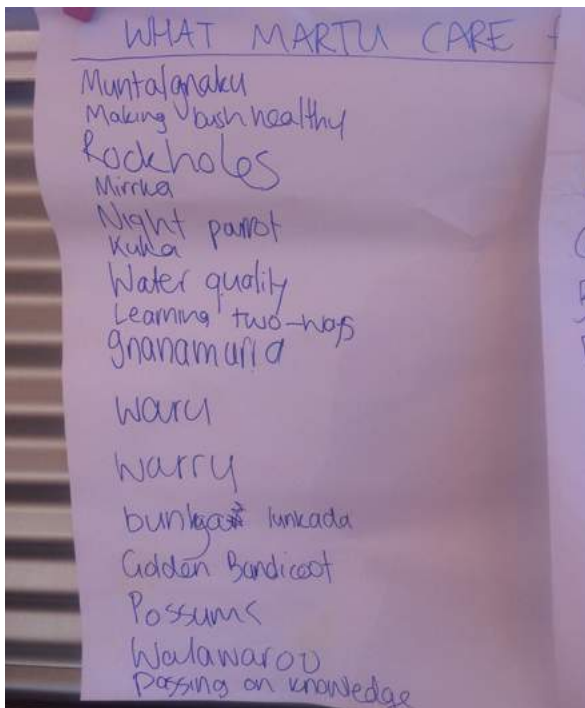 WHAT MARTU CARE
Muntalgnaku
Making bush healthy
Rockholes
Mirrka
Night parrot
Kuka
Water quality
Learning two-ways
gnanamurra
waru
warry
lunkada
Golden Bandicoot
Possums
Walawaroo
passing on knowledge